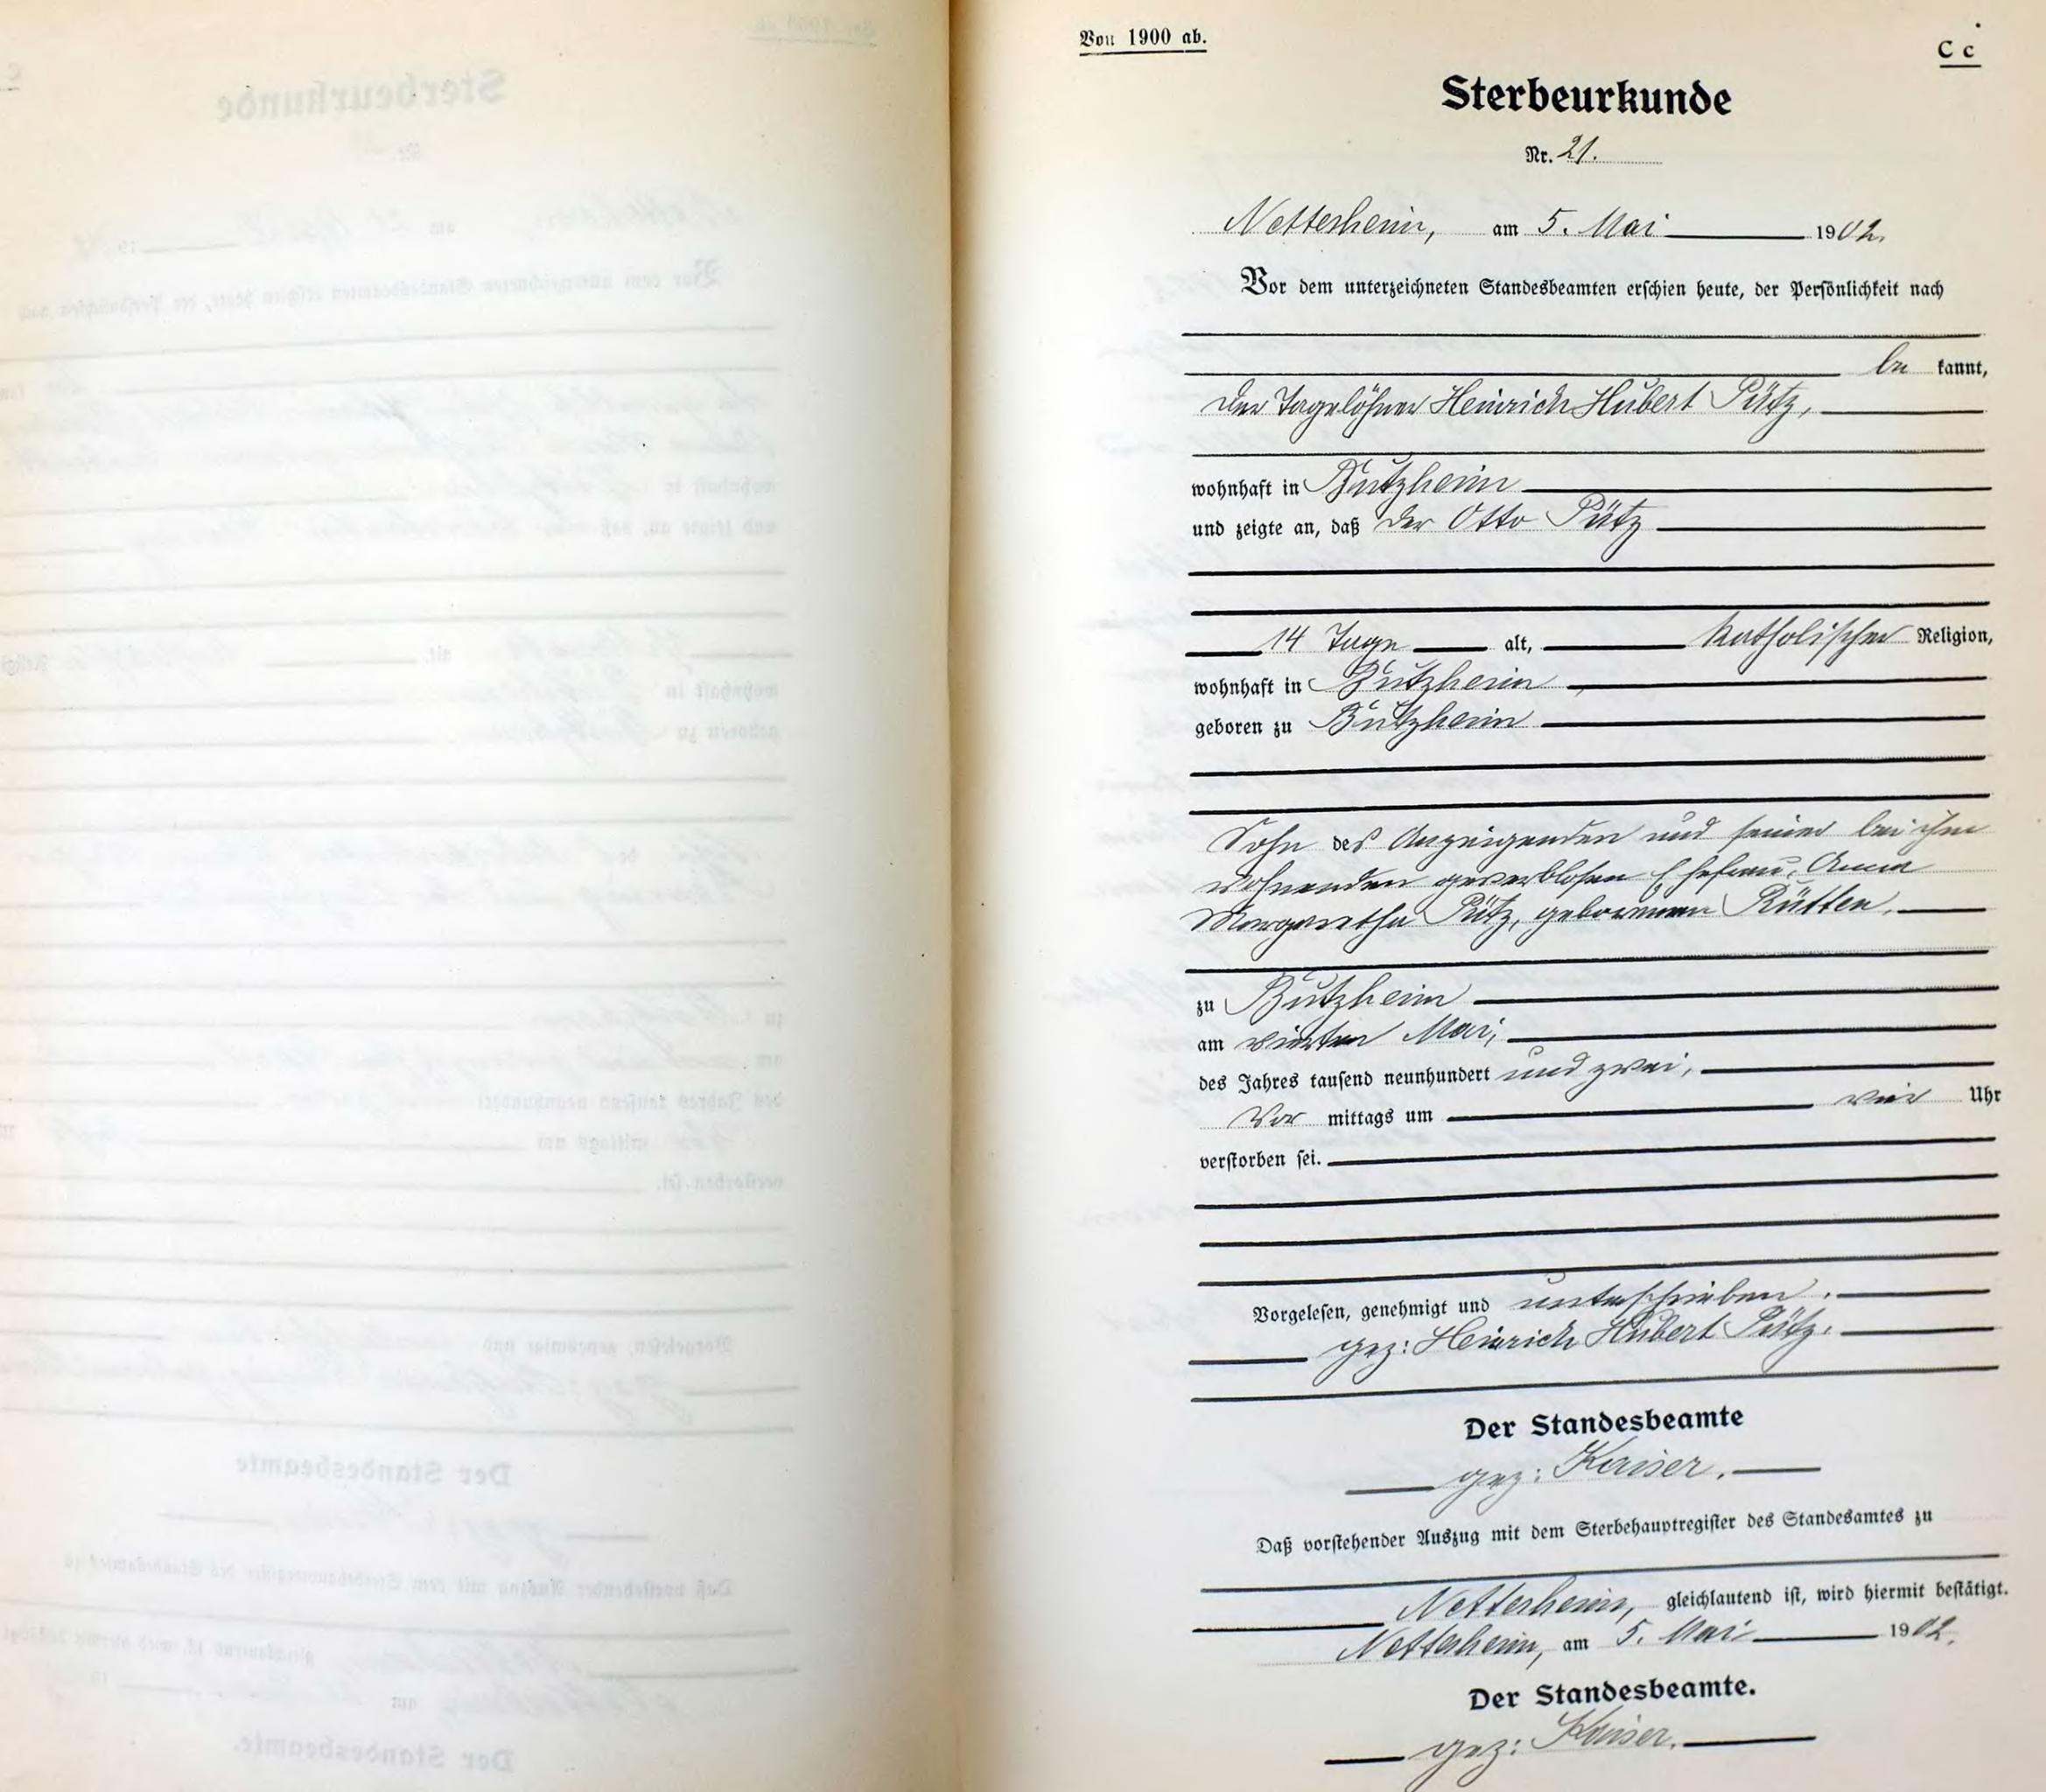 Von 1900 ab.
C c
Sterbeurkunde
Nr. 21.
Nettersheim, am 5. Mai 1902.
Vor dem unterzeichneten Standesbeamten erschien heute, der Persönlichkeit nach
be kannt,
der Tagelöhner Heinrich Hubert Pütz,
wohnhaft in Bützheim
und zeigte an, daß der Otto Pütz
14 Tage alt, katholischer Religion,
wohnhaft in Bützheim
geboren zu Bützheim
Sohn des Anzeigenden und seiner bei ihm
wohnenden gewerblosen Ehefrau, Anna
Margaretha Pütz, geborenen Rütten.
zu Bützheim
am vierten Mai,
des Jahres tausend neunhundert und zwei,
Vor mittags um vier Uhr
verstorben sei.
Vorgelesen, genehmigt und unterschrieben.
gez: Heinrich Hubert Pütz.
Der Standesbeamte
gez: Kaiser.
Daß vorstehender Auszug mit dem Sterbehauptregister des Standesamtes zu
Nettersheim, gleichlautend ist, wird hiermit bestätigt.
Nettersheim, am 5. Mai 1902.
Der Standesbeamte.
gez: Kaiser.